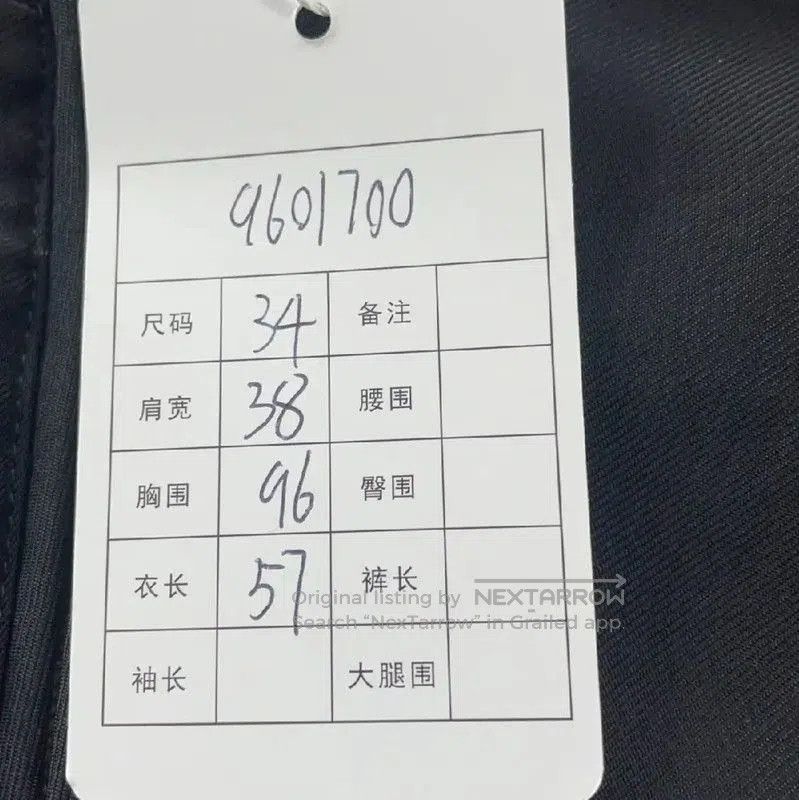 9601700
尺码 34 备注
肩宽 38 腰围
胸围 96 臀围
衣长 57 裤长
袖长 大腿围
Original listing by NEXTARROW
Search “NexTarrow” in Grailed app